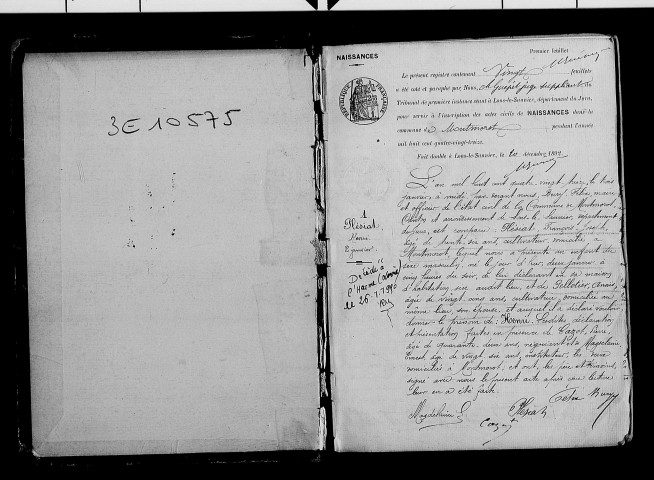 3E 10575
NAISSANCES
Premier feuillet
Le présent registre contenant Vingt feuillets
a été coté et paraphé par Nous, juge suppléant du
Tribunal de première instance séant à Lons-le-Saunier, département du Jura,
pour servir à l'inscription des actes civils de NAISSANCES dans la
commune de Montmorot pendant l'année
mil huit cent quatre-vingt-treize.
Fait double à Lons-le-Saunier, le décembre 1892
RÉPUBLIQUE FRANÇAISE
1
Plésiat
Henri
2 janvier
Décédé à
le 26.1.19
L'an mil huit cent quatre vingt treize, le trois
janvier, à midi, par devant nous, Bury Félix, maire
et officier de l'état civil de la Commune de Montmorot,
Canton et arrondissement de Lons le Saunier, département
du Jura, est comparu Plésiat François Joseph,
âgé de trente six ans, cultivateur, domicilié à
Montmorot, lequel nous a présenté un enfant du
sexe masculin, né le jour d'hier, deux janvier, à
cinq heures du soir, de lui déclarant en sa maison
d'habitation, sise audit lieu et de Pelletier,
âgée de vingt cinq ans, cultivatrice, domiciliée au
même lieu, son épouse, et auquel il a déclaré vouloir
donner le prénom de Henri. Lesdites déclaration
et présentation faites en présence de Cazot,
âgé de quarante deux ans, négociant et Magdelaine,
Ernest, âgé de vingt six ans, instituteur, les deux
domiciliés à Montmorot, et ont, les père et témoins,
signé avec nous le présent acte après que lecture
leur en a été faite.
Magdelaine E. Plésiat Félix Bury
Cazot